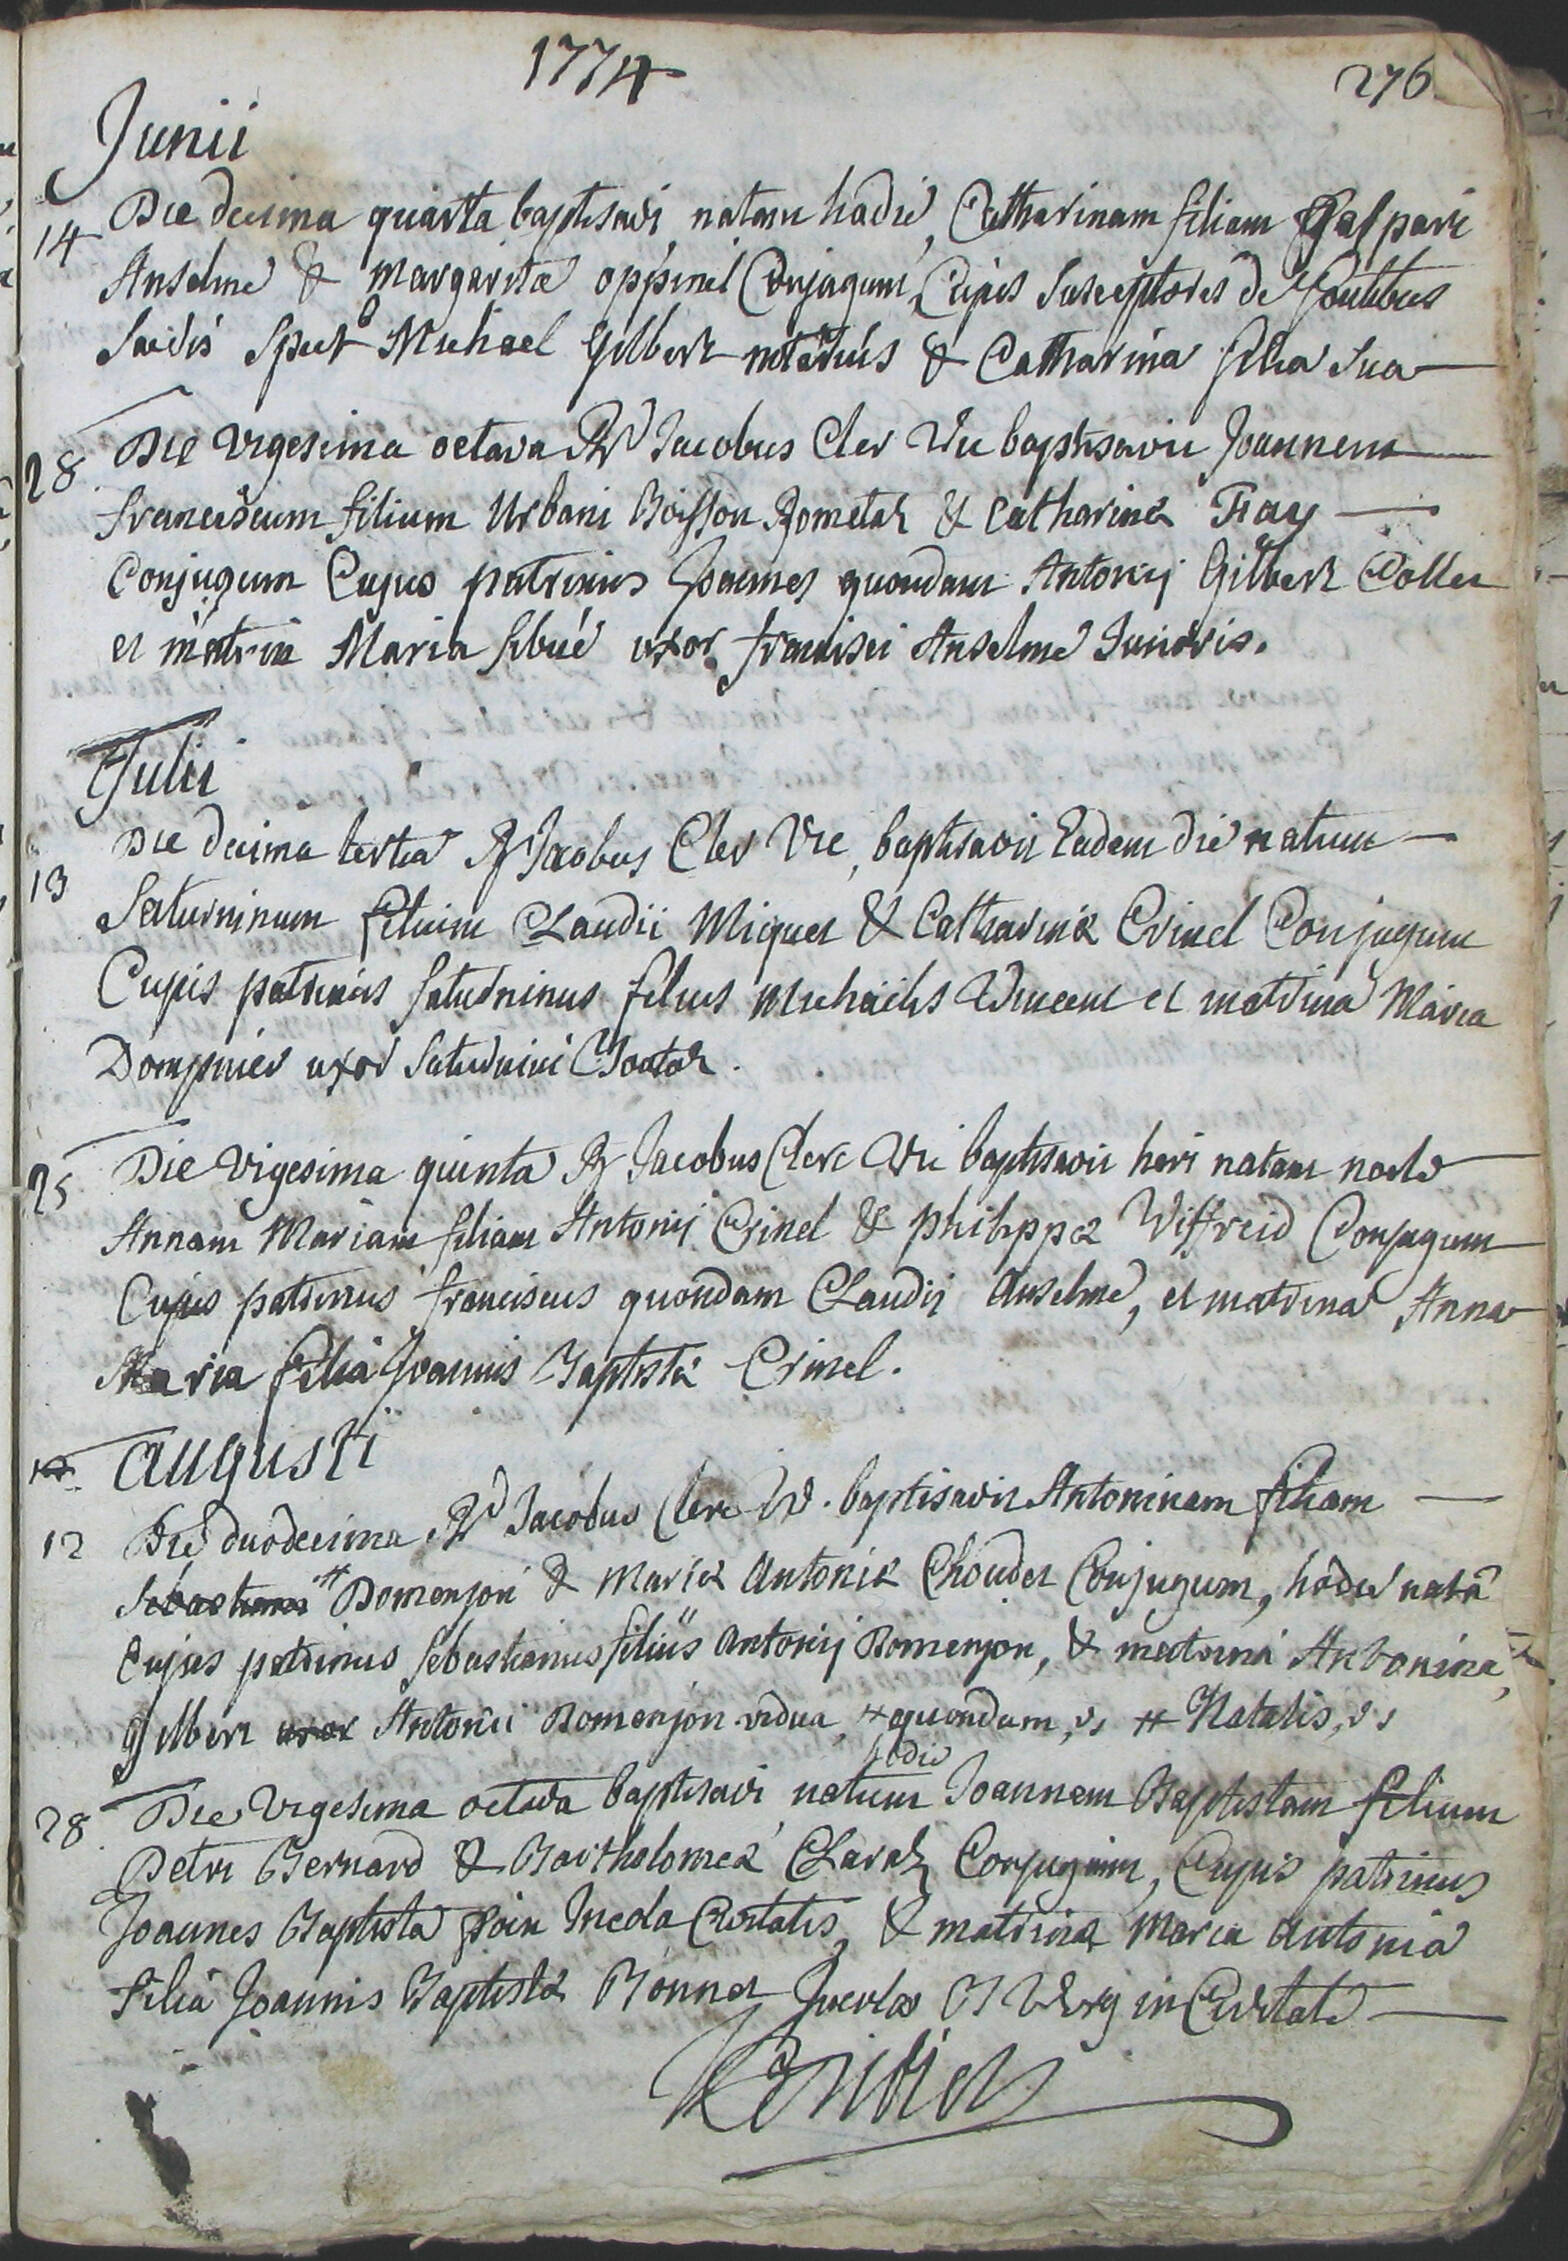 1774
276
Junii
14 Die decima quarta baptisavi, natam hodie, Catharinam filiam Gaspari
Anselme & Margaritæ oppinel Conjugum, Cujus Susceptores de fontibus
Sacris Spect Michael Gilbert notarius & Catharina filia Sua
28 Die vigesima octava Rd Jacobus Cler Vic baptisavit Joannem
franciscum filium Urbani Boisson Rometaz & Catharinæ Fay
Conjugum Cujus patrinus Joannes quondam Antonij Gilbert Collet
et matrin Maria sibué uxor francisci Anselme Junioris.
Julii
13 Die decima tertia R Jacobus Cler Vic, baptisavit Eadem die natum
Saturninum filium Claudii Miguet & Catharinæ Crinel Conjugum
Cujus patrinus Saturninus filius Michaelis Vincent et matrina Maria
Dompnier uxor Saturnini
25 Die Vigesima quinta R Jacobus Clerc Vic baptisavit heri natam nocte
Annam Mariam filiam Antonij Crinel & philippæ Viffreid Conjugum
Cujus patrinus franciscus quondam Claudij Anselme, et matrina Anna
Maria filia Joannis Baptistæ Crinel.
12 Augusti
12 Die duodecima Rd Jacobus Clerc Vic. baptisavit Antoninam filiam
Sebastiani # Domenjon & Mariæ Antoniæ Choudet Conjugum, hodie natã
Cujus patrinus Sebastianus filius Antonij Domenjon, & matrina Antonina,
Gilbert uxor Antonii Domenjon vidua, + quondam, # Natalis,
hodie
28 Die Vigesima octava baptisavi, natum Joannem Baptistam filium
Petri Bernard & Bartholomeæ Claraz Conjugum, Cujus patrinus
Joannes Baptista Civitatis, & matrina Maria Antonia
filia Joannis Baptistæ Bonnet in Civitate